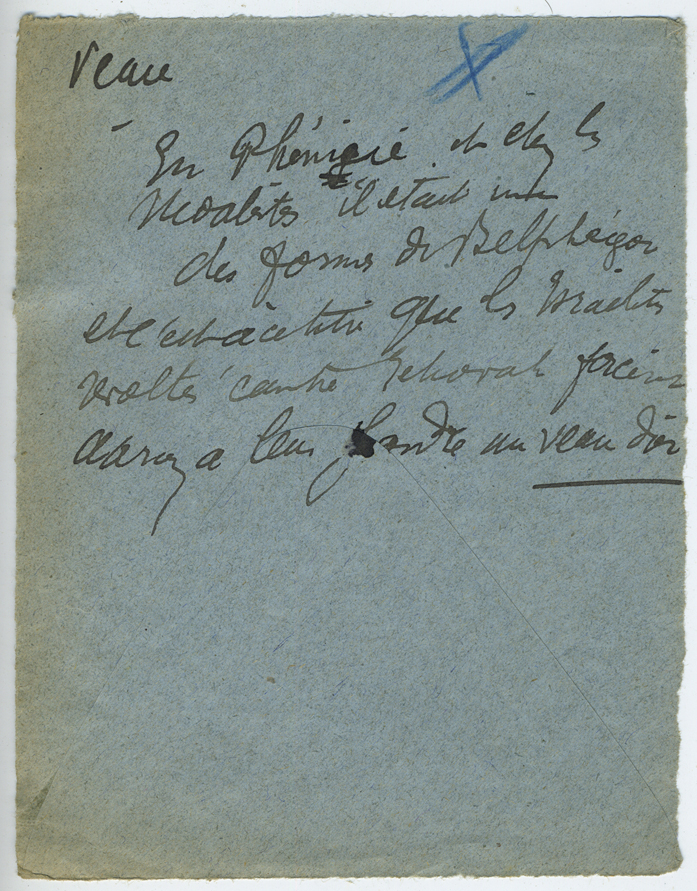 Veau
En Phénicie et chez les
Moabites il était une
des formes de Belphégor
et c'est à ce titre que les Israélites
révoltés contre Jehovah forcèrent
Aaron à leur fondre un veau d'or